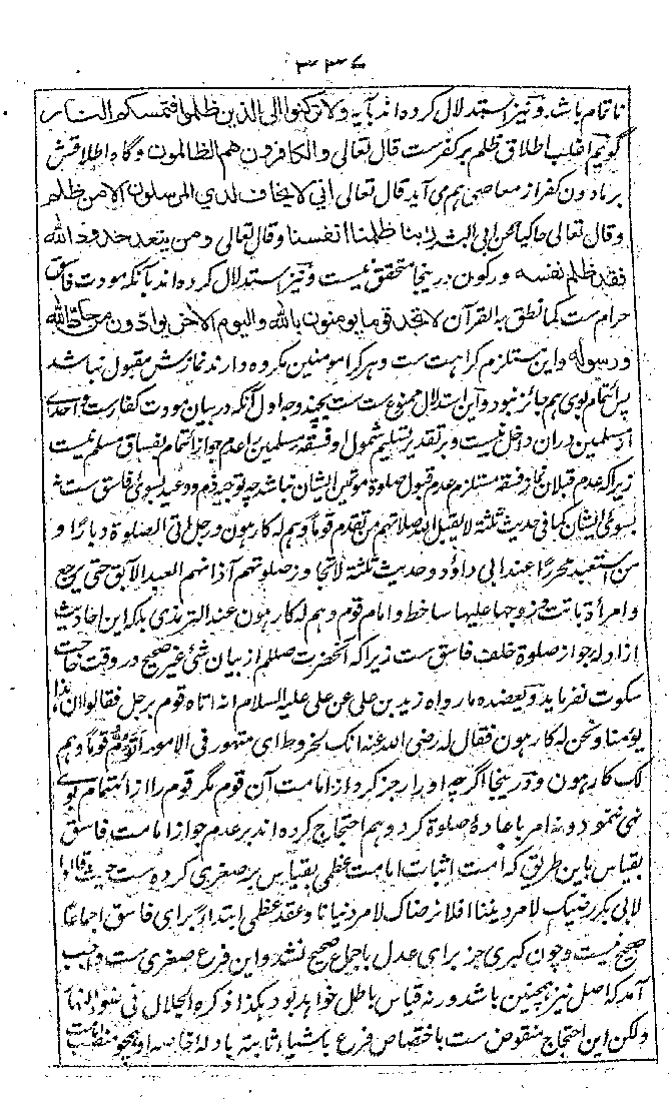 ۳۳۶
ناتمام باشد و نیز استدلال کرده‌اند بآیه ولا ترکنوا الی الذین ظلموا فتمسکم النار
گویم اغلب اطلاق ظلم بر کفرست قال تعالی والکافرون هم الظالمون و گاه اطلاقش
بر مادون کفر از معاصی هم می‌آید قال تعالی انی لا یخاف لدی المرسلون الا من ظلم
وقال تعالی حاکیا عن ابی البشر ربنا ظلمنا انفسنا وقال تعالی ومن یتعد حدود الله
فقد ظلم نفسه و رکون درینجا متحقق نیست و نیز استدلال کرده‌اند بآنکه مودت فاسق
حرام ست کما نطق به القرآن لا تجد قوما یومنون بالله والیوم الاخر یوادون من حاد الله
ورسوله و این مستلزم کراهت ست و هر کرا مومنین مکروه دارند نمازش مقبول نباشد
پس ائتمام بوی هم جائز نبود و این استدلال ممنوع ست بچند وجه اول آنکه در بیان مودت کفارست و احدی
از مسلمین دران داخل نیست و بر تقدیر تسلیم شمول او فسقهٔ مسلمین را عدم جواز ائتمام بفساق مسلم نیست
زیرا که عدم قبول نماز فسقه مستلزم عدم قبول صلوة موتمین ایشان نباشد چه توجیه ذم و وعید بسوی فاسق ست نه
بسوی ایشان کما فی حدیث ثلثة لا یقبل الله صلاتهم من تقدم قوما وهم له کارهون ورجل اتی الصلوة دبارا و
من استعبد محررا عند ابی داؤد و حدیث ثلثة لا تجاوز صلوتهم آذانهم العبد الآبق حتی یرجع
وامرأة باتت وزوجها علیها ساخط وامام قوم وهم له کارهون عند الترمذی بلکه این احادیث
از ادلهٔ جواز صلوة خلف فاسق ست زیرا که آنحضرت صللم از بیان شئ غیر صحیح در وقت حاجت
سکوت نفرماید و یعضده ما رواه زید بن علی عن علی علیه السلام انه اتاه قوم برجل فقالوا ان هذا
یؤمنا ونحن له کارهون فقال له رضی الله عنه انک لخروط ای متهور فی الامور اتؤم قوما وهم
لک کارهون و درینجا اگرچه او را زجر کرد از امامت آن قوم مگر قوم را از ائتمام بوی
نهی ننمود و نه امر باعادهٔ صلوة کرد و هم احتجاج کرده‌اند بر عدم جواز امامت فاسق
بقیاس باین طریق که امت اثبات امامت عظمی بقیاس بر صغری کرده ست حیث قالوا
لابی بکر رضیک لامر دیننا افلا نرضاک لامر دنیانا و عقد عظمی ابتداء برای فاسق اجماعا
صحیح نیست و چون کبری جز برای عدل باجماع صحیح نشد و این فرع صغری ست واجب
آمد که اصل نیز همچنین باشد ورنه قیاس باطل خواهد بود هکذا ذکره الجلال فی ضوء النهار
ولکن این احتجاج منقوض ست باختصاص فرع باشیاء ثابته بادلهٔ خاصه او همچو منصب امامت